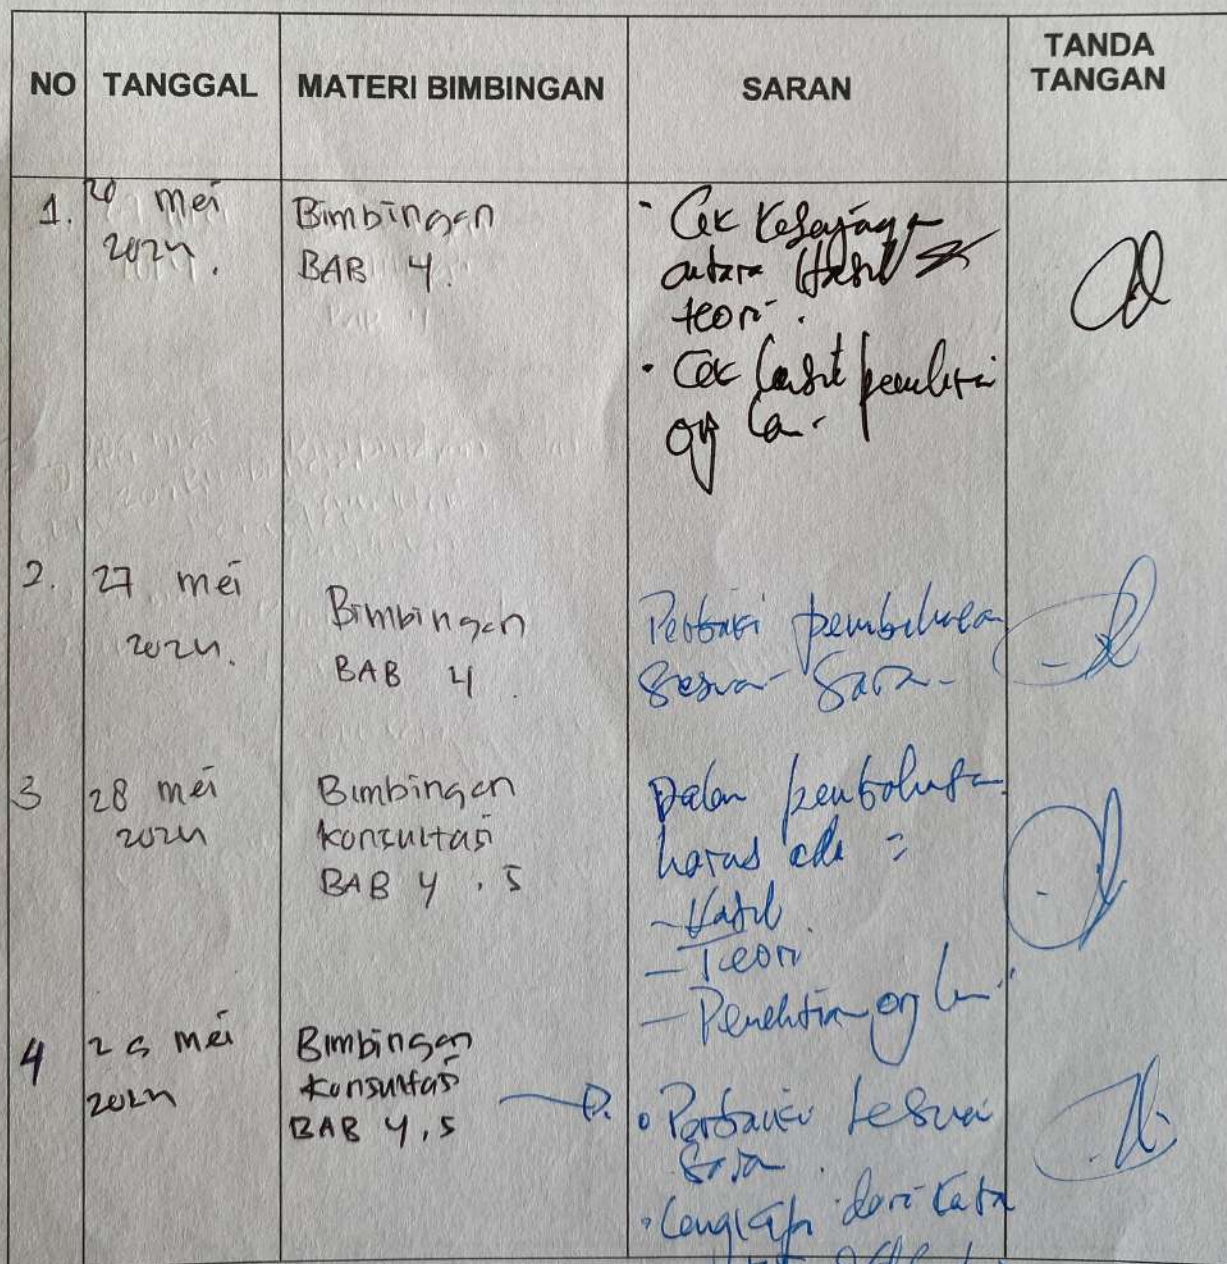 NO TANGGAL MATERI BIMBINGAN SARAN TANDA TANGAN
1. mei 2024. Bimbingan BAB 4.
- Cek
antara Hasil
teori.
• Cek hasil
2. 27 mei 2024. Bimbingan BAB 4.
Perbaiki pembahasan
sesuai saran
3 28 mei 2024 Bimbingan konsultasi BAB 4, 5
Dalam pembahasan
harus ada :
- Hasil
- Teori
- Penelitian org lain
4 mei 2024 Bimbingan Konsultasi BAB 4, 5
• Perbaiki sesuai
saran
• Lengkapi dari Kata